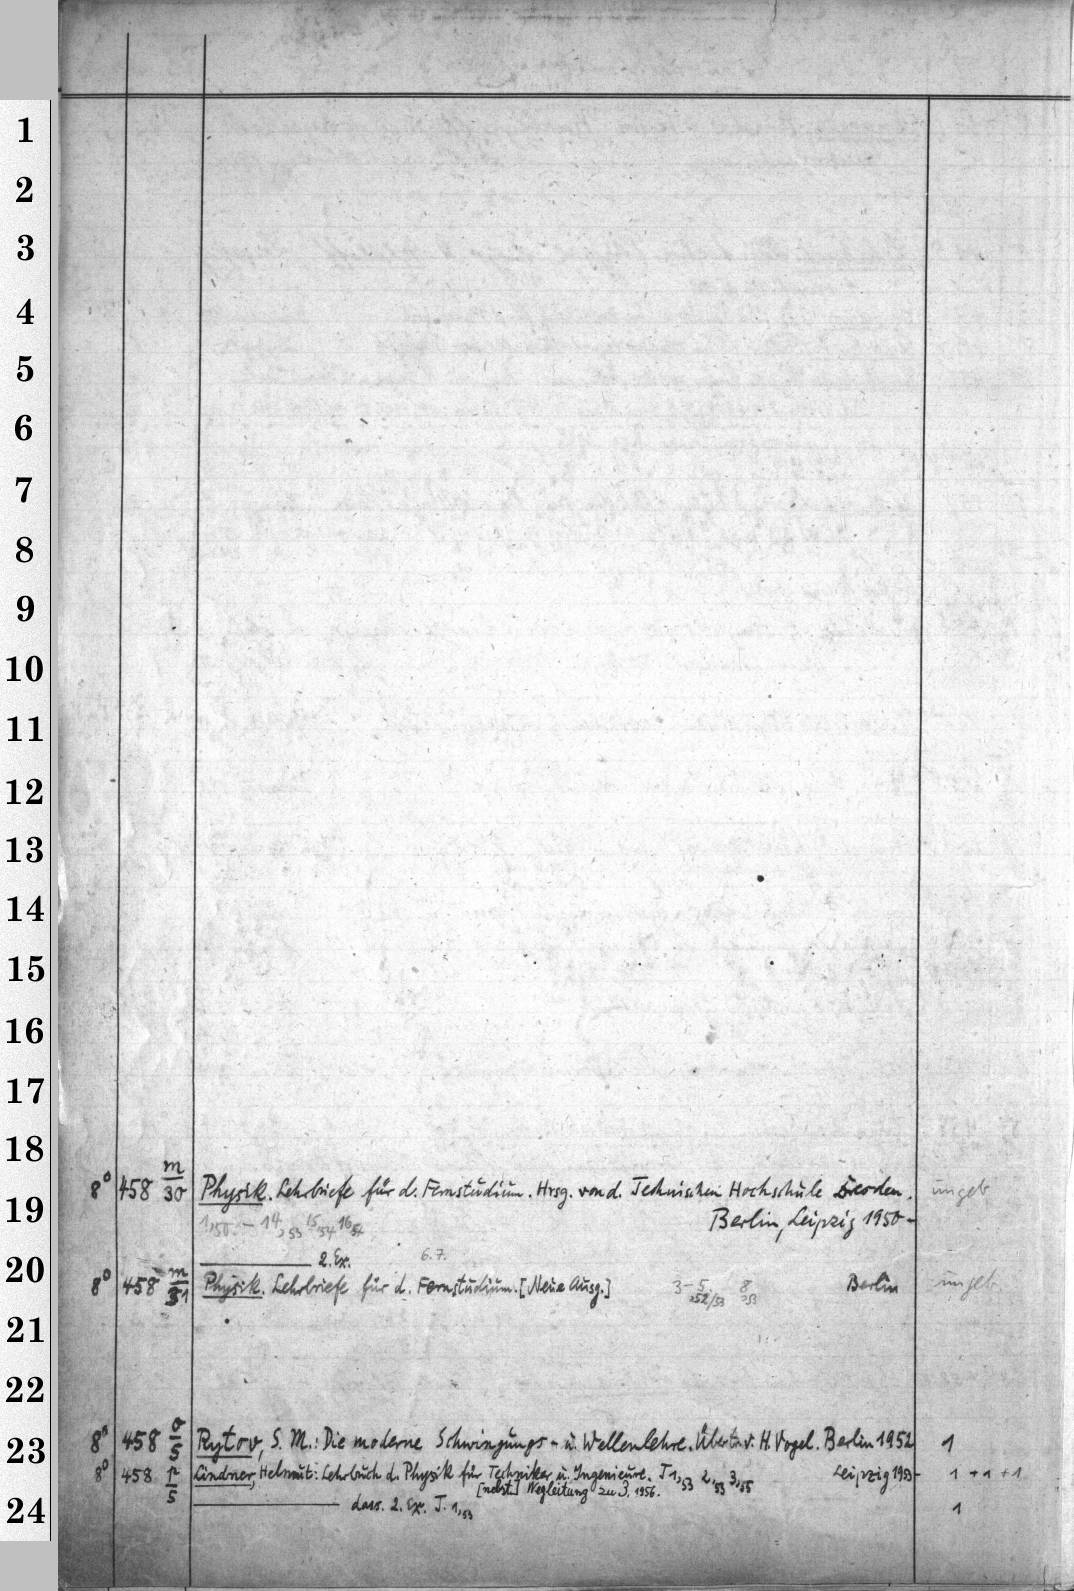 1
2
3
4
5
6
7
8
9
10
11
12
13
14
15
16
17
18
8° 458 m/30 Physik. Lehrbriefe für d. Fernstudium. Hrsg. von d. Technischen Hochschule Dresden. ungeb
19
1,50 – 14,53 15,54 16,54 Berlin, Leipzig 1950-
20
2. Ex. 6.7.
8° 458 m/31 Physik. Lehrbriefe für d. Fernstudium. [Neue Ausg.] 3-5,52/53 8,53 Berlin ungeb.
21
22
8° 458 o/5 Rytov, S. M.: Die moderne Schwingungs- u. Wellenlehre. Übertr. v. H. Vogel. Berlin 1952 1
23
8° 458 p/5 Lindner, Helmut: Lehrbuch d. Physik für Techniker u. Ingenieure. T 1,53 2,53 3,55 Leipzig 1953- 1 + 1 + 1
[nebst] Wegleitung zu 3. 1956.
24
dass. 2. Ex. T. 1,53 1